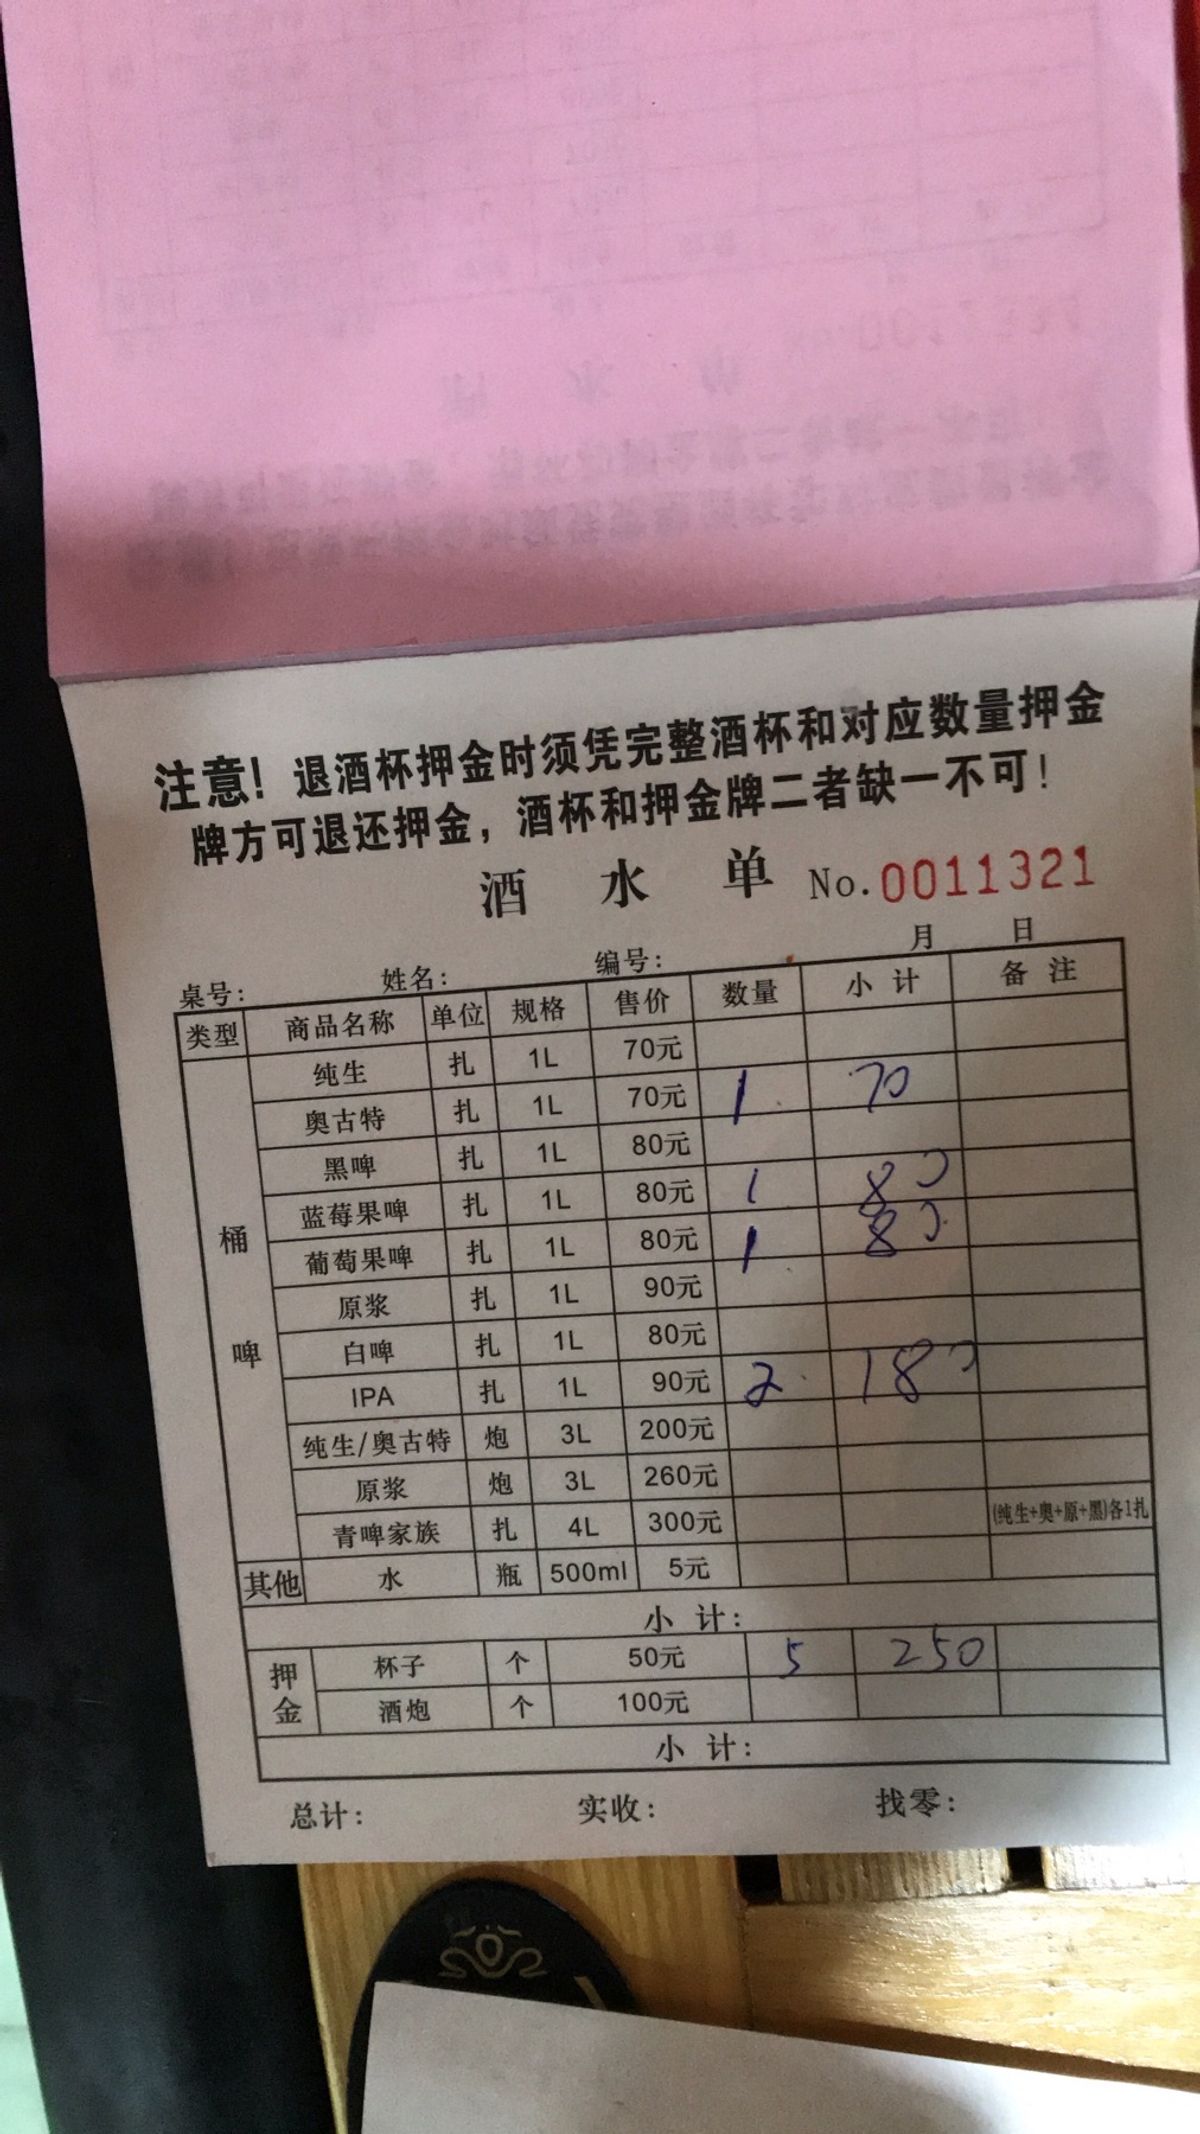 注意！退酒杯押金时须凭完整酒杯和对应数量押金
牌方可退还押金，酒杯和押金牌二者缺一不可！
酒 水 单 No.0011321
桌号： 姓名： 编号： 月 日
类型 商品名称 单位 规格 售价 数量 小计 备注
桶啤 纯生 扎 1L 70元
奥古特 扎 1L 70元 1 70
黑啤 扎 1L 80元
蓝莓果啤 扎 1L 80元 1 80
葡萄果啤 扎 1L 80元 1 80
原浆 扎 1L 90元
白啤 扎 1L 80元
IPA 扎 1L 90元 2 180
纯生/奥古特 炮 3L 200元
原浆 炮 3L 260元
青啤家族 扎 4L 300元 (纯生+奥+原+黑)各1扎
其他 水 瓶 500ml 5元
小 计：
押金 杯子 个 50元 5 250
酒炮 个 100元
小 计：
总计： 实收： 找零：